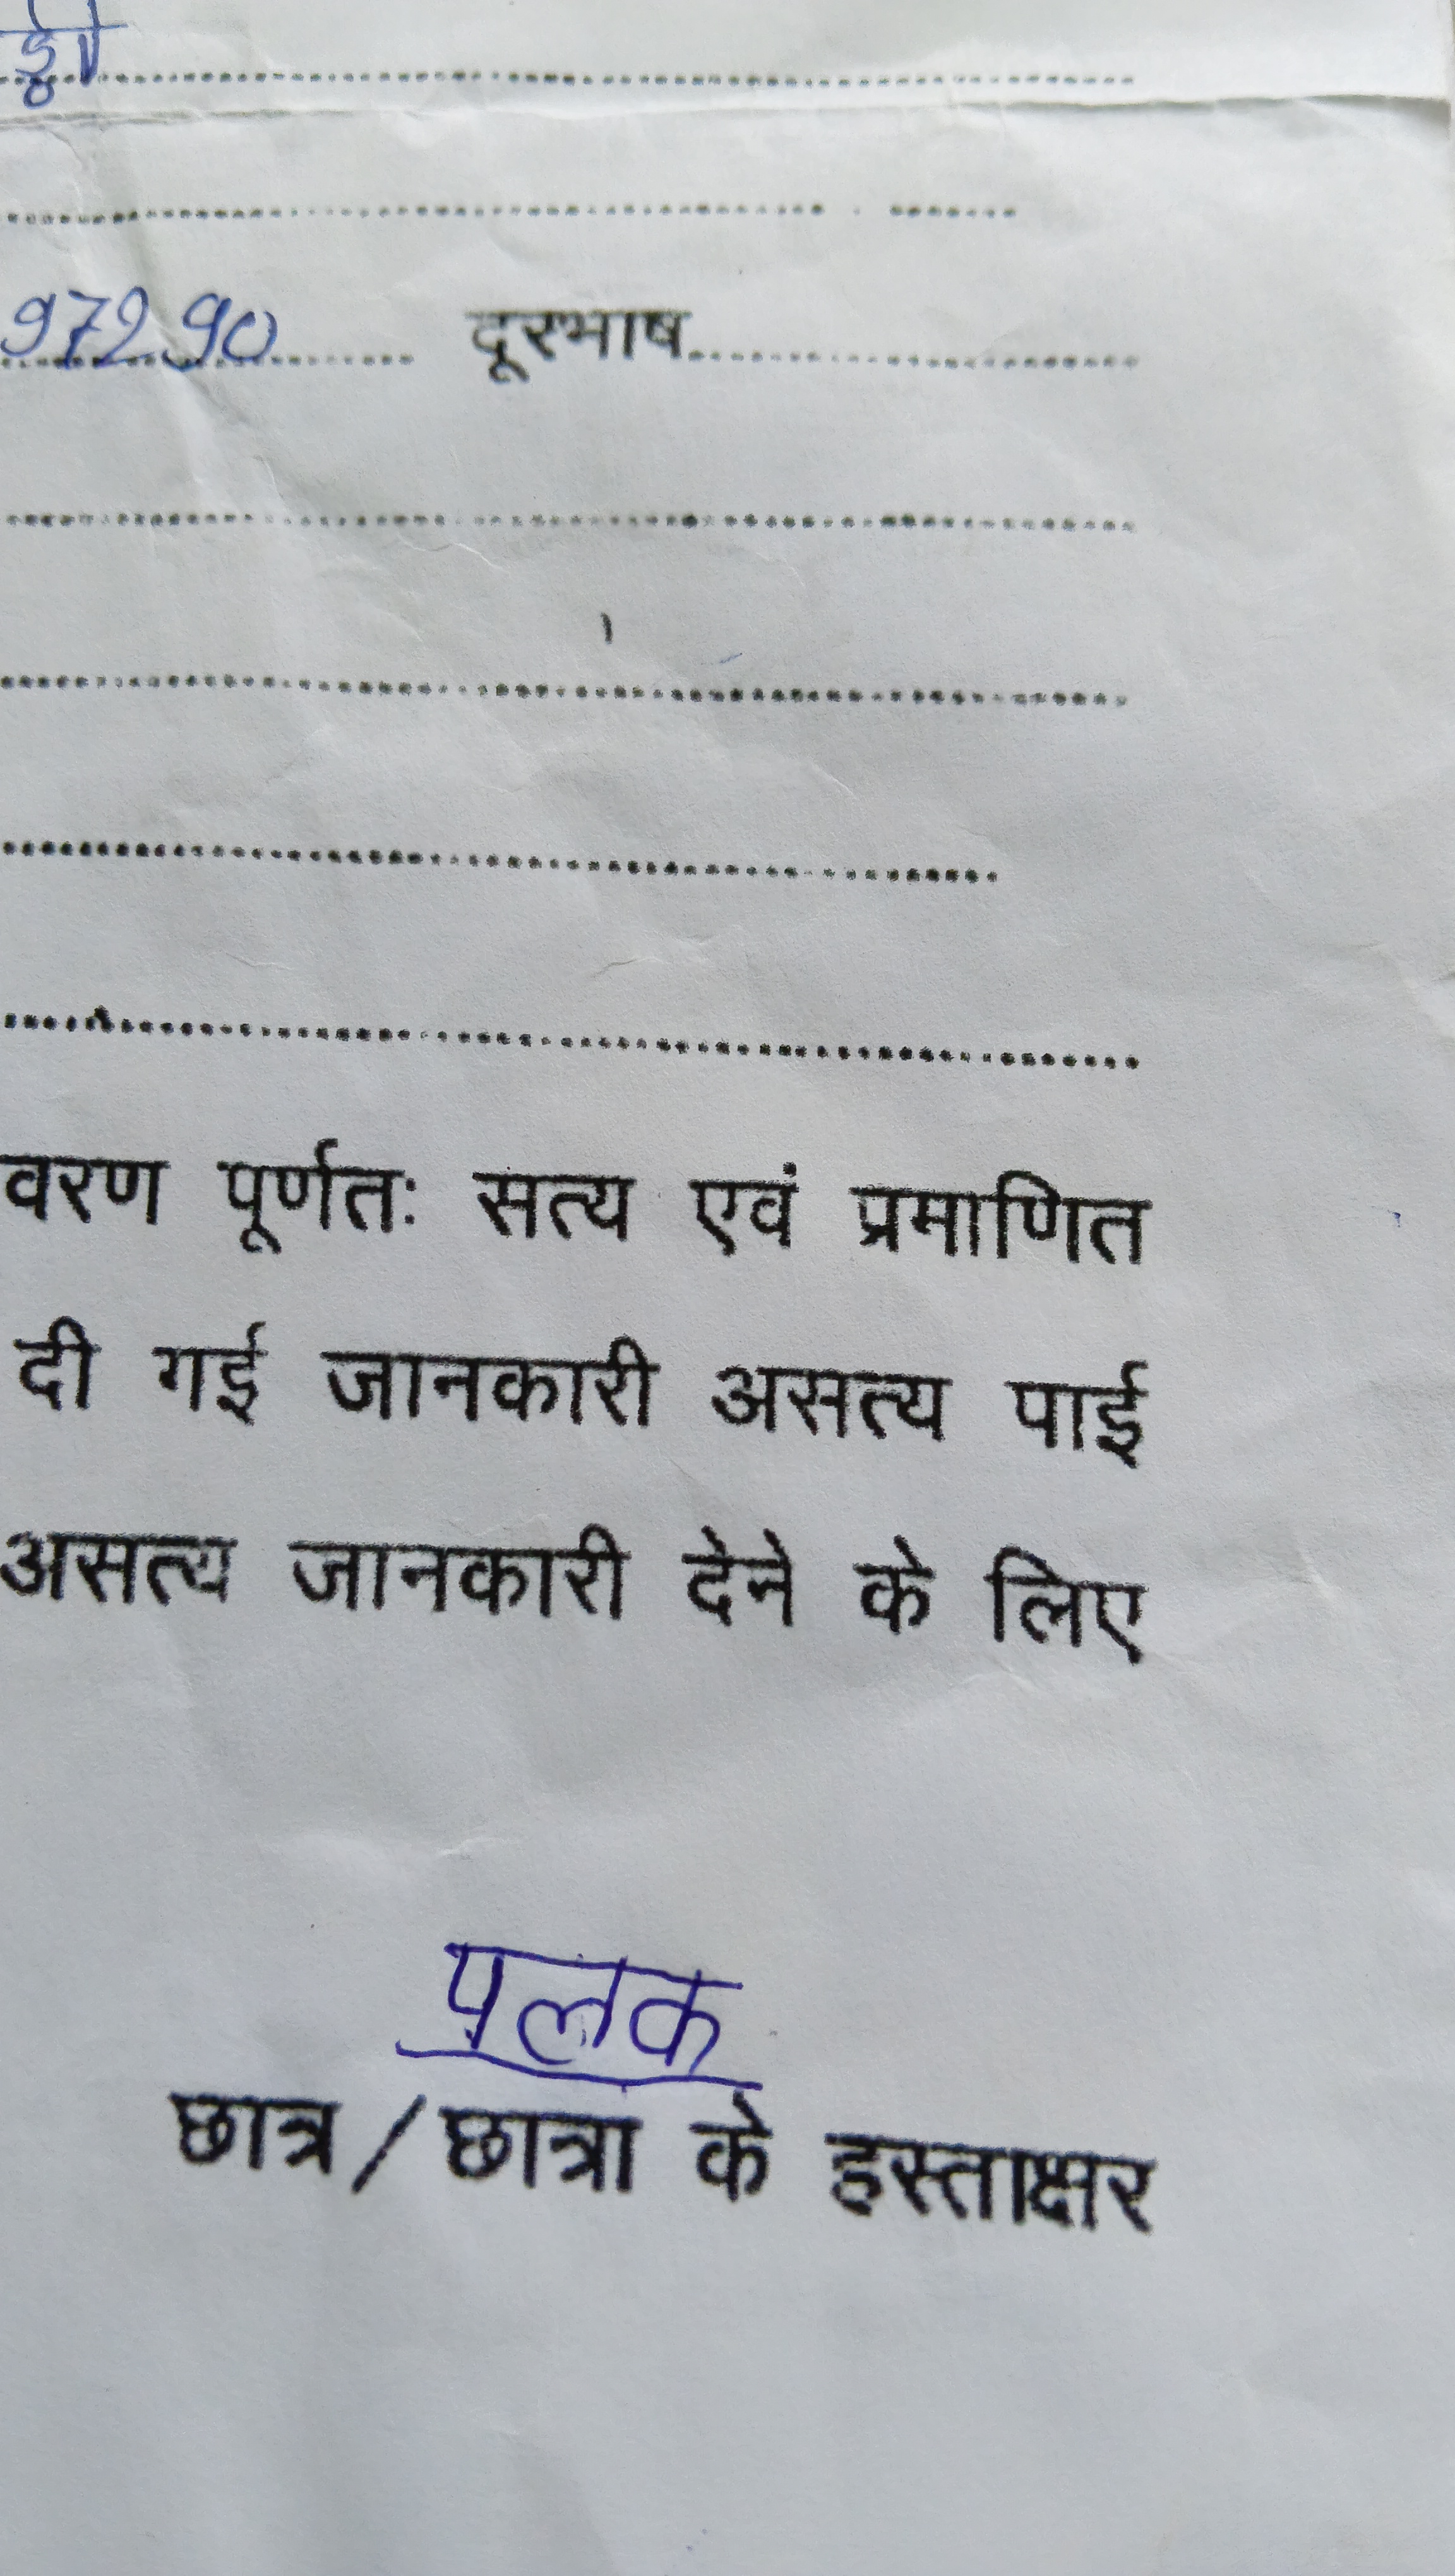 97290 दूरभाष
वरण पूर्णतः सत्य एवं प्रमाणित
दी गई जानकारी असत्य पाई
असत्य जानकारी देने के लिए
पलक
छात्र/छात्रा के हस्ताक्षर